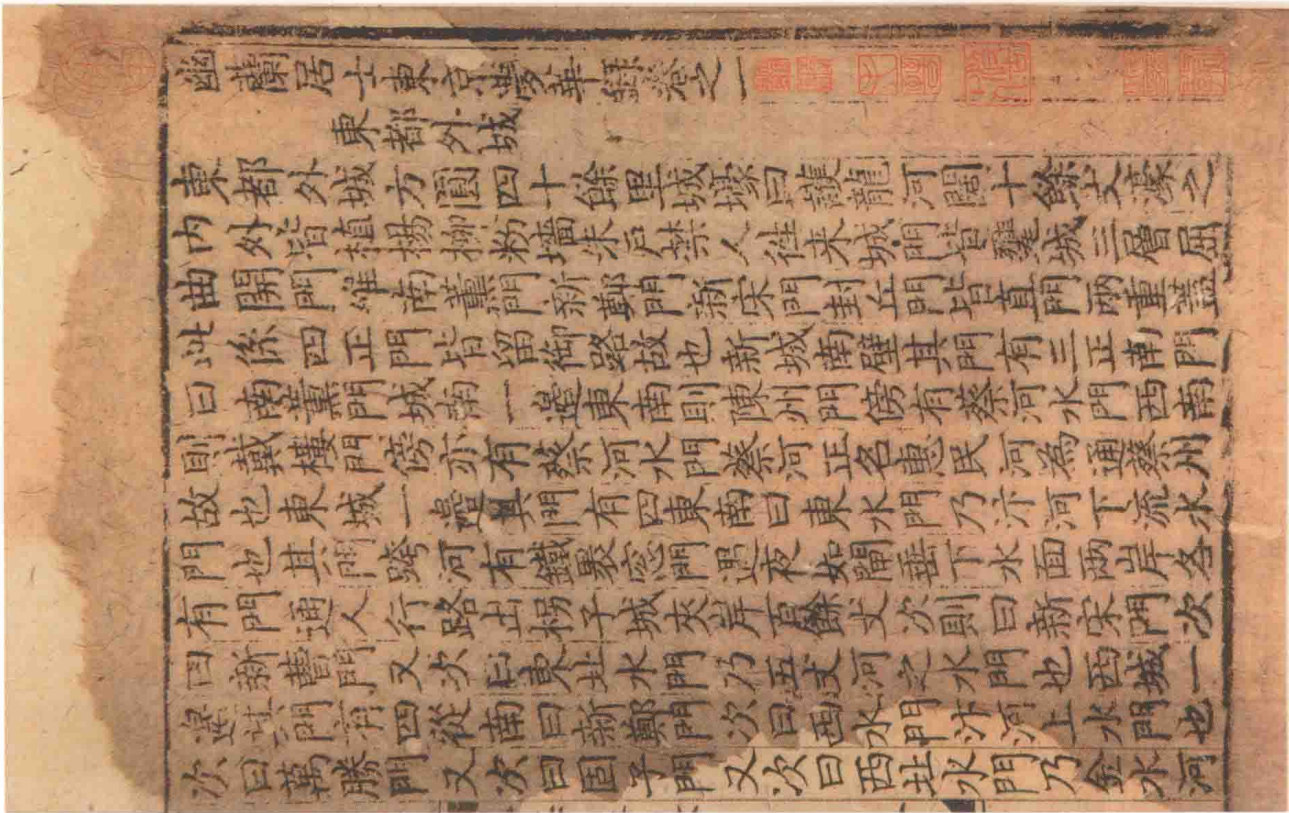 幽蘭居士東京夢華錄卷之一
東都外城
東都外城方圓四十餘里城壕曰護龍河闊十餘丈濠之
内外皆植楊柳粉墻朱戶禁人往来城門皆甕城三層屈
曲開門維南薰門新鄭門新宋門封丘門皆直門兩重蓋
此係四正門皆留御路故也新城南壁其門有三正南門
曰南薰門城南一邊東南則陳州門傍有蔡河水門西南
則戴樓門傍亦有蔡河水門蔡河正名惠民河為通蔡州
故也東城一邊其門有四東南曰東水門乃汴河下流水
門也其門跨河有鐵裹窓門遇夜如閘垂下水面兩岸各
有門通人行路出拐子城夾岸百餘丈次則曰新宋門次
曰新曹門又次曰東北水門乃五丈河之水門也西城一
邊其門有四從南曰新鄭門次曰西水門汴河上水門也
次曰萬勝門又次曰固子門又次曰西北水門乃金水河